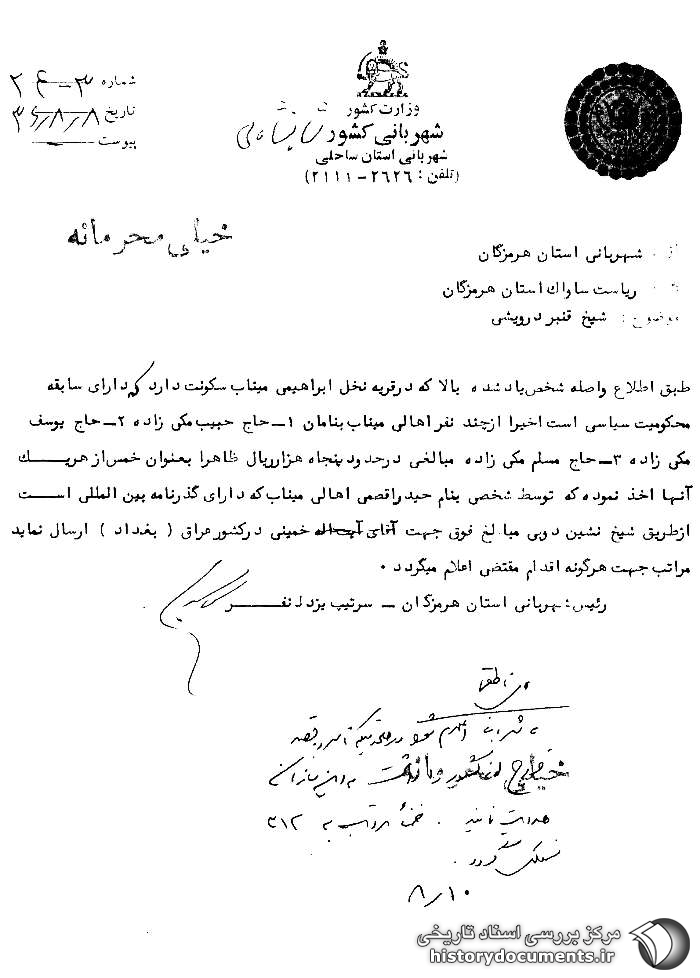 شماره ۳-۲۶
تاریخ ۳۶/۸/۸
پیوست
وزارت کشور
شهربانی کشور
شهربانی استان ساحلی
(تلفن : ۲۶۲۶-۲۱۱۱)
خیلی محرمانه
شهربانی استان هرمزگان
ریاست ساواک استان هرمزگان
موضوع : شیخ قنبر درویشی
طبق اطلاع واصله شخص یاد شده بالا که در قریه نخل ابراهیمی میناب سکونت دارد که دارای سابقه
محکومیت سیاسی است اخیرا از چند نفر اهالی میناب بنامان ۱ـ حاج حبیب مکی زاده ۲ـ حاج یوسف
مکی زاده ۳ـ حاج مسلم مکی زاده مبالغی در حدود پنجاه هزار ریال ظاهرا بعنوان خمس از هریک
آنها اخذ نموده که توسط شخصی بنام حیدر اقصمی اهالی میناب که دارای گذرنامه بین المللی است
از طریق شیخ نشین دوبی مبالغ فوق جهت آقای آیت اله خمینی در کشور عراق ( بغداد ) ارسال نماید
مراتب جهت هرگونه اقدام مقتضی اعلام میگردد .
رئیس شهربانی استان هرمزگان ـ سرتیپ یزدان نفر
خیلی محرمانه
به ۳۱۲
۸/۱۰
مرکز بررسی اسناد تاریخی
historydocuments.ir